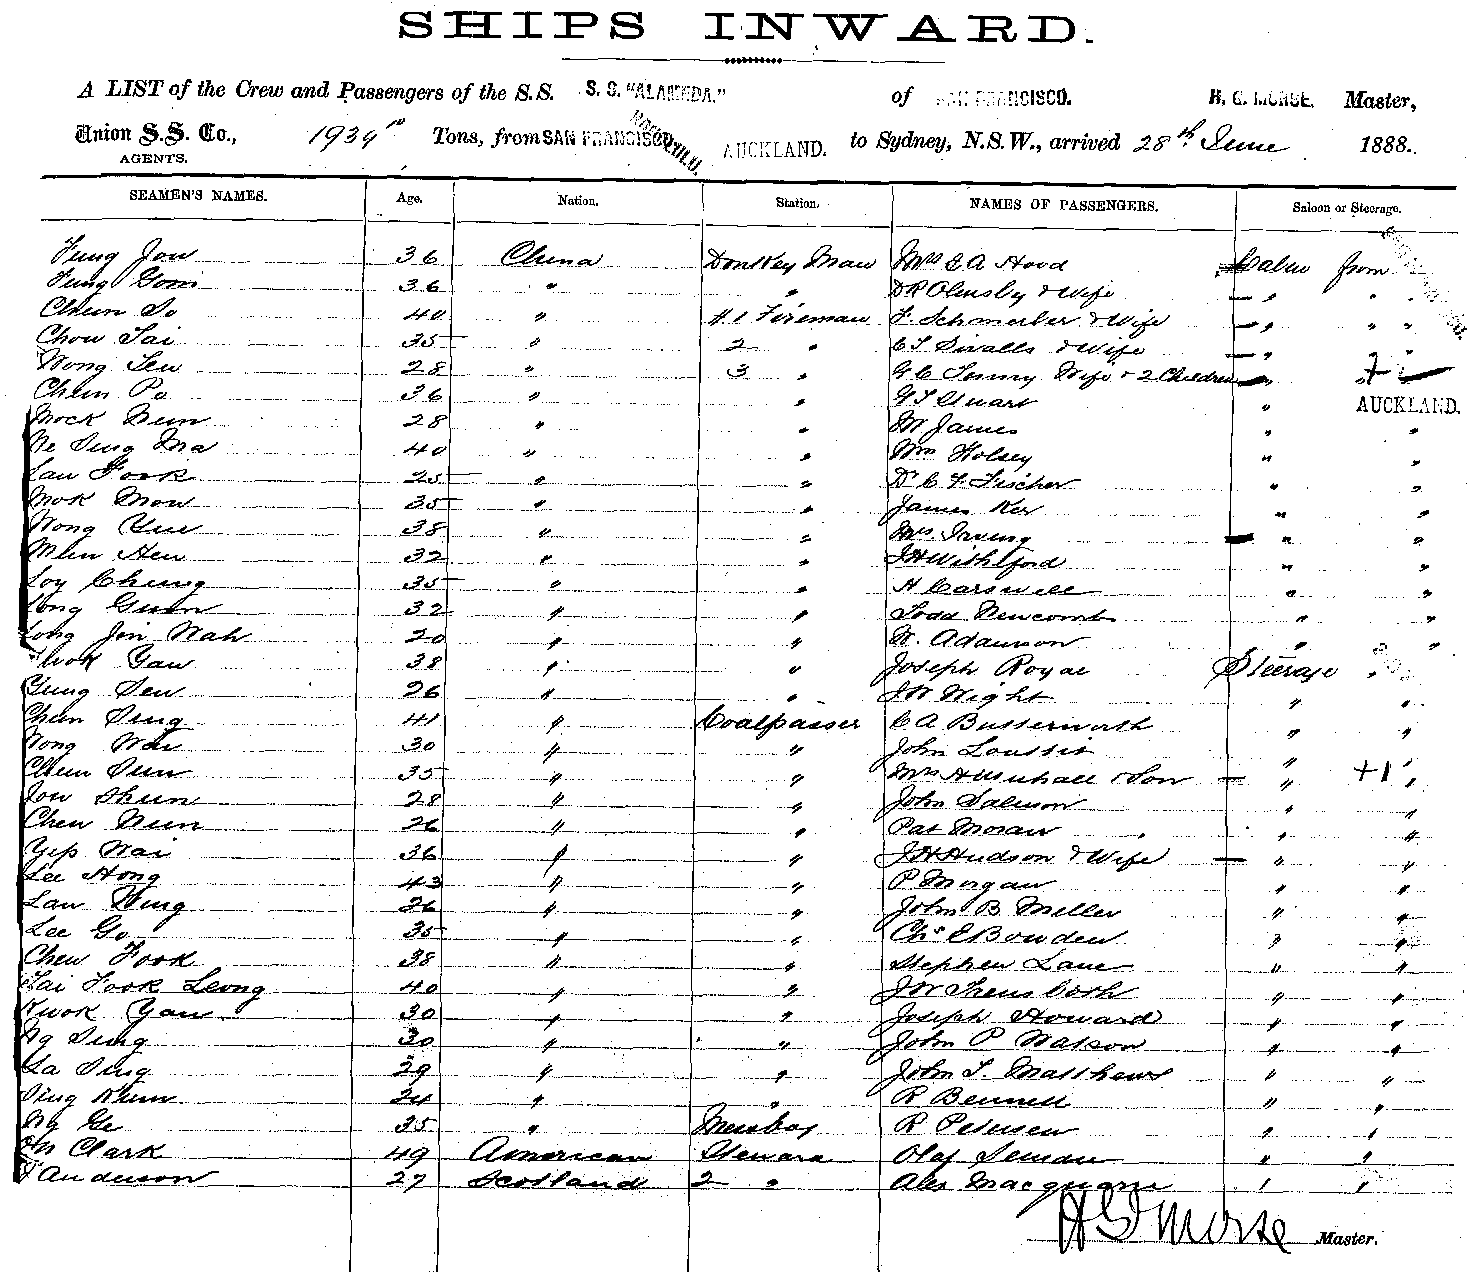 SHIPS INWARD.
A LIST of the Crew and Passengers of the S.S. S. S. "ALAMEDA." of SAN FRANCISCO. H. G. MORSE, Master,
Union S.S. Co., 1939 Tons, from SAN FRANCISCO HONOLULU AUCKLAND. to Sydney, N.S.W., arrived 28th June 1888.
AGENTS.
SEAMEN'S NAMES. Age. Nation. Station. NAMES OF PASSENGERS. Saloon or Steerage.
Fung Jow 36 China Donkey Man Mrs A Hood Cabin from
Fung 36 " " Dr Olmsby & Wife " " "
Chun So 40 " # 1 Fireman F. Schmerber & Wife " " "
Chow Tai 35 " 2 " Sivalls & Wife "
Wong Seu 28 " 3 " G C Tenny Wife & 2 Children " " +
Chun Po 36 " " G T Stuart " AUCKLAND.
Mock Nun 28 " " M James " "
Ne Sing Ma 40 " " Wm Holsey " "
Lau Fook 25 " " Dr C F Fischer " "
Mok Mow 35 " " James Ker " "
Wong Yuu 38 " " Mrs Irving " "
Hen 32 " " J H Withiford " "
Loy Chung 35 " " H Carswell " "
Long Guun 32 " " Todd Newcomb " "
Long Jin Wah 20 " " W. Adamson " "
Kwok Yau 38 " " Joseph Royal Steerage "
Yung Seu 26 " " J W Wight " "
Chun Sing 41 " Coalpasser C A Butterworth " "
Wong Wai 30 " " John " "
Chun Sun 35 " " Mrs & Son " +1 "
Jow Shun 28 " " John Salmon " "
Chew Nun 26 " " Pat Moran " "
Yip Wai 36 " " J H Hudson & Wife " "
Lee Hong 43 " " P Morgan " "
Lau Wing 26 " " John B Miller " "
Lee Go 35 " " Chs E Bowden " "
Chew Fook 38 " " Stephen Lane " "
Tai Fook Leong 40 " " J W " "
Kwok Yau 30 " " Joseph Howard " "
Ng Sing 30 " " John P Watson " "
La Sing 29 " " John T. Matthews " "
Sing Khun 24 " " R Bennett " "
Ng Ge 35 " Messboy R Petersen " "
Clark 49 American Steward Olaf " "
Anderson 27 Scotland 2 " Alex Macquarie " "
H G Morse Master.